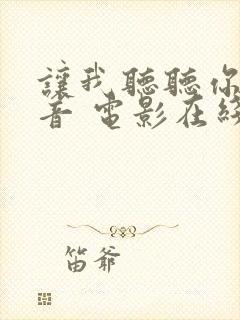 讓我聽聽你
音 電影在線
笛爷